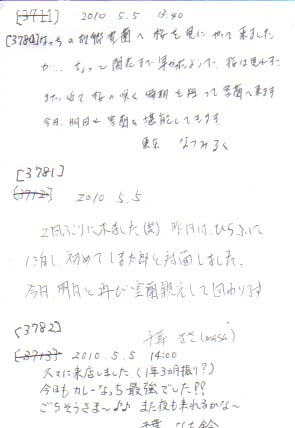 [3711] 2010 5.5 13:40
[3780] なっちの故郷室蘭へ桜を見にやって来ました
が… ちょっと開花まで早かったようで、桜は見れず…
また近て桜の咲く時期を狙って室蘭へ来ます
今日、明日と室蘭を堪能してきます
東京 なつみるく
[3781]
[3712] 2010 5.5
2日ぶりに来ました(笑) 昨日は、ひらふに
1泊し、初めてしま太郎と対面しました。
今日、明日と再び室蘭観光して回わります
[3782] 千葉 まさ(masa)
[3713] 2010.5.5 14:00
久々に来店しました(1年3ヵ月振り?)
今日もカレーなっち最強でした!!
ごちそうさま〜♪♪ また夜も来れるかな〜